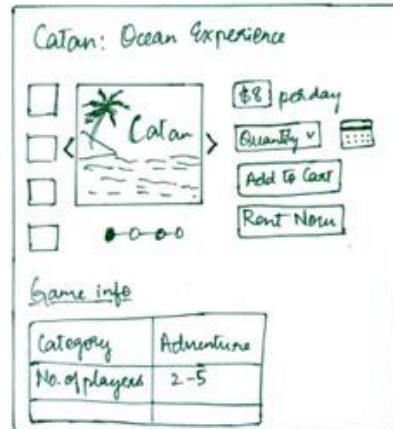 Catan: Ocean Experience
Catan
$8 per day
Quantity
Add to Cart
Rent Now
Game info
Category Adventure
No. of players 2-5